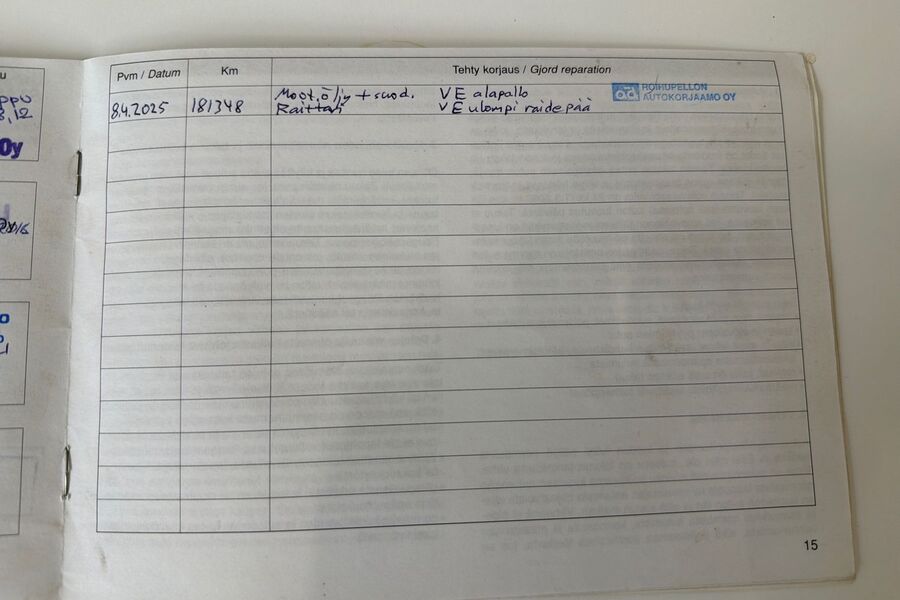 Pvm / Datum Km Tehty korjaus / Gjord reparation
8.4.2025 181348 Moot.öljy + suod. VE alapallo
Raittari VE ulompi raidepää
ad ROIHUPELLON
AUTOKORJAAMO OY
15
u
ppu
Oy